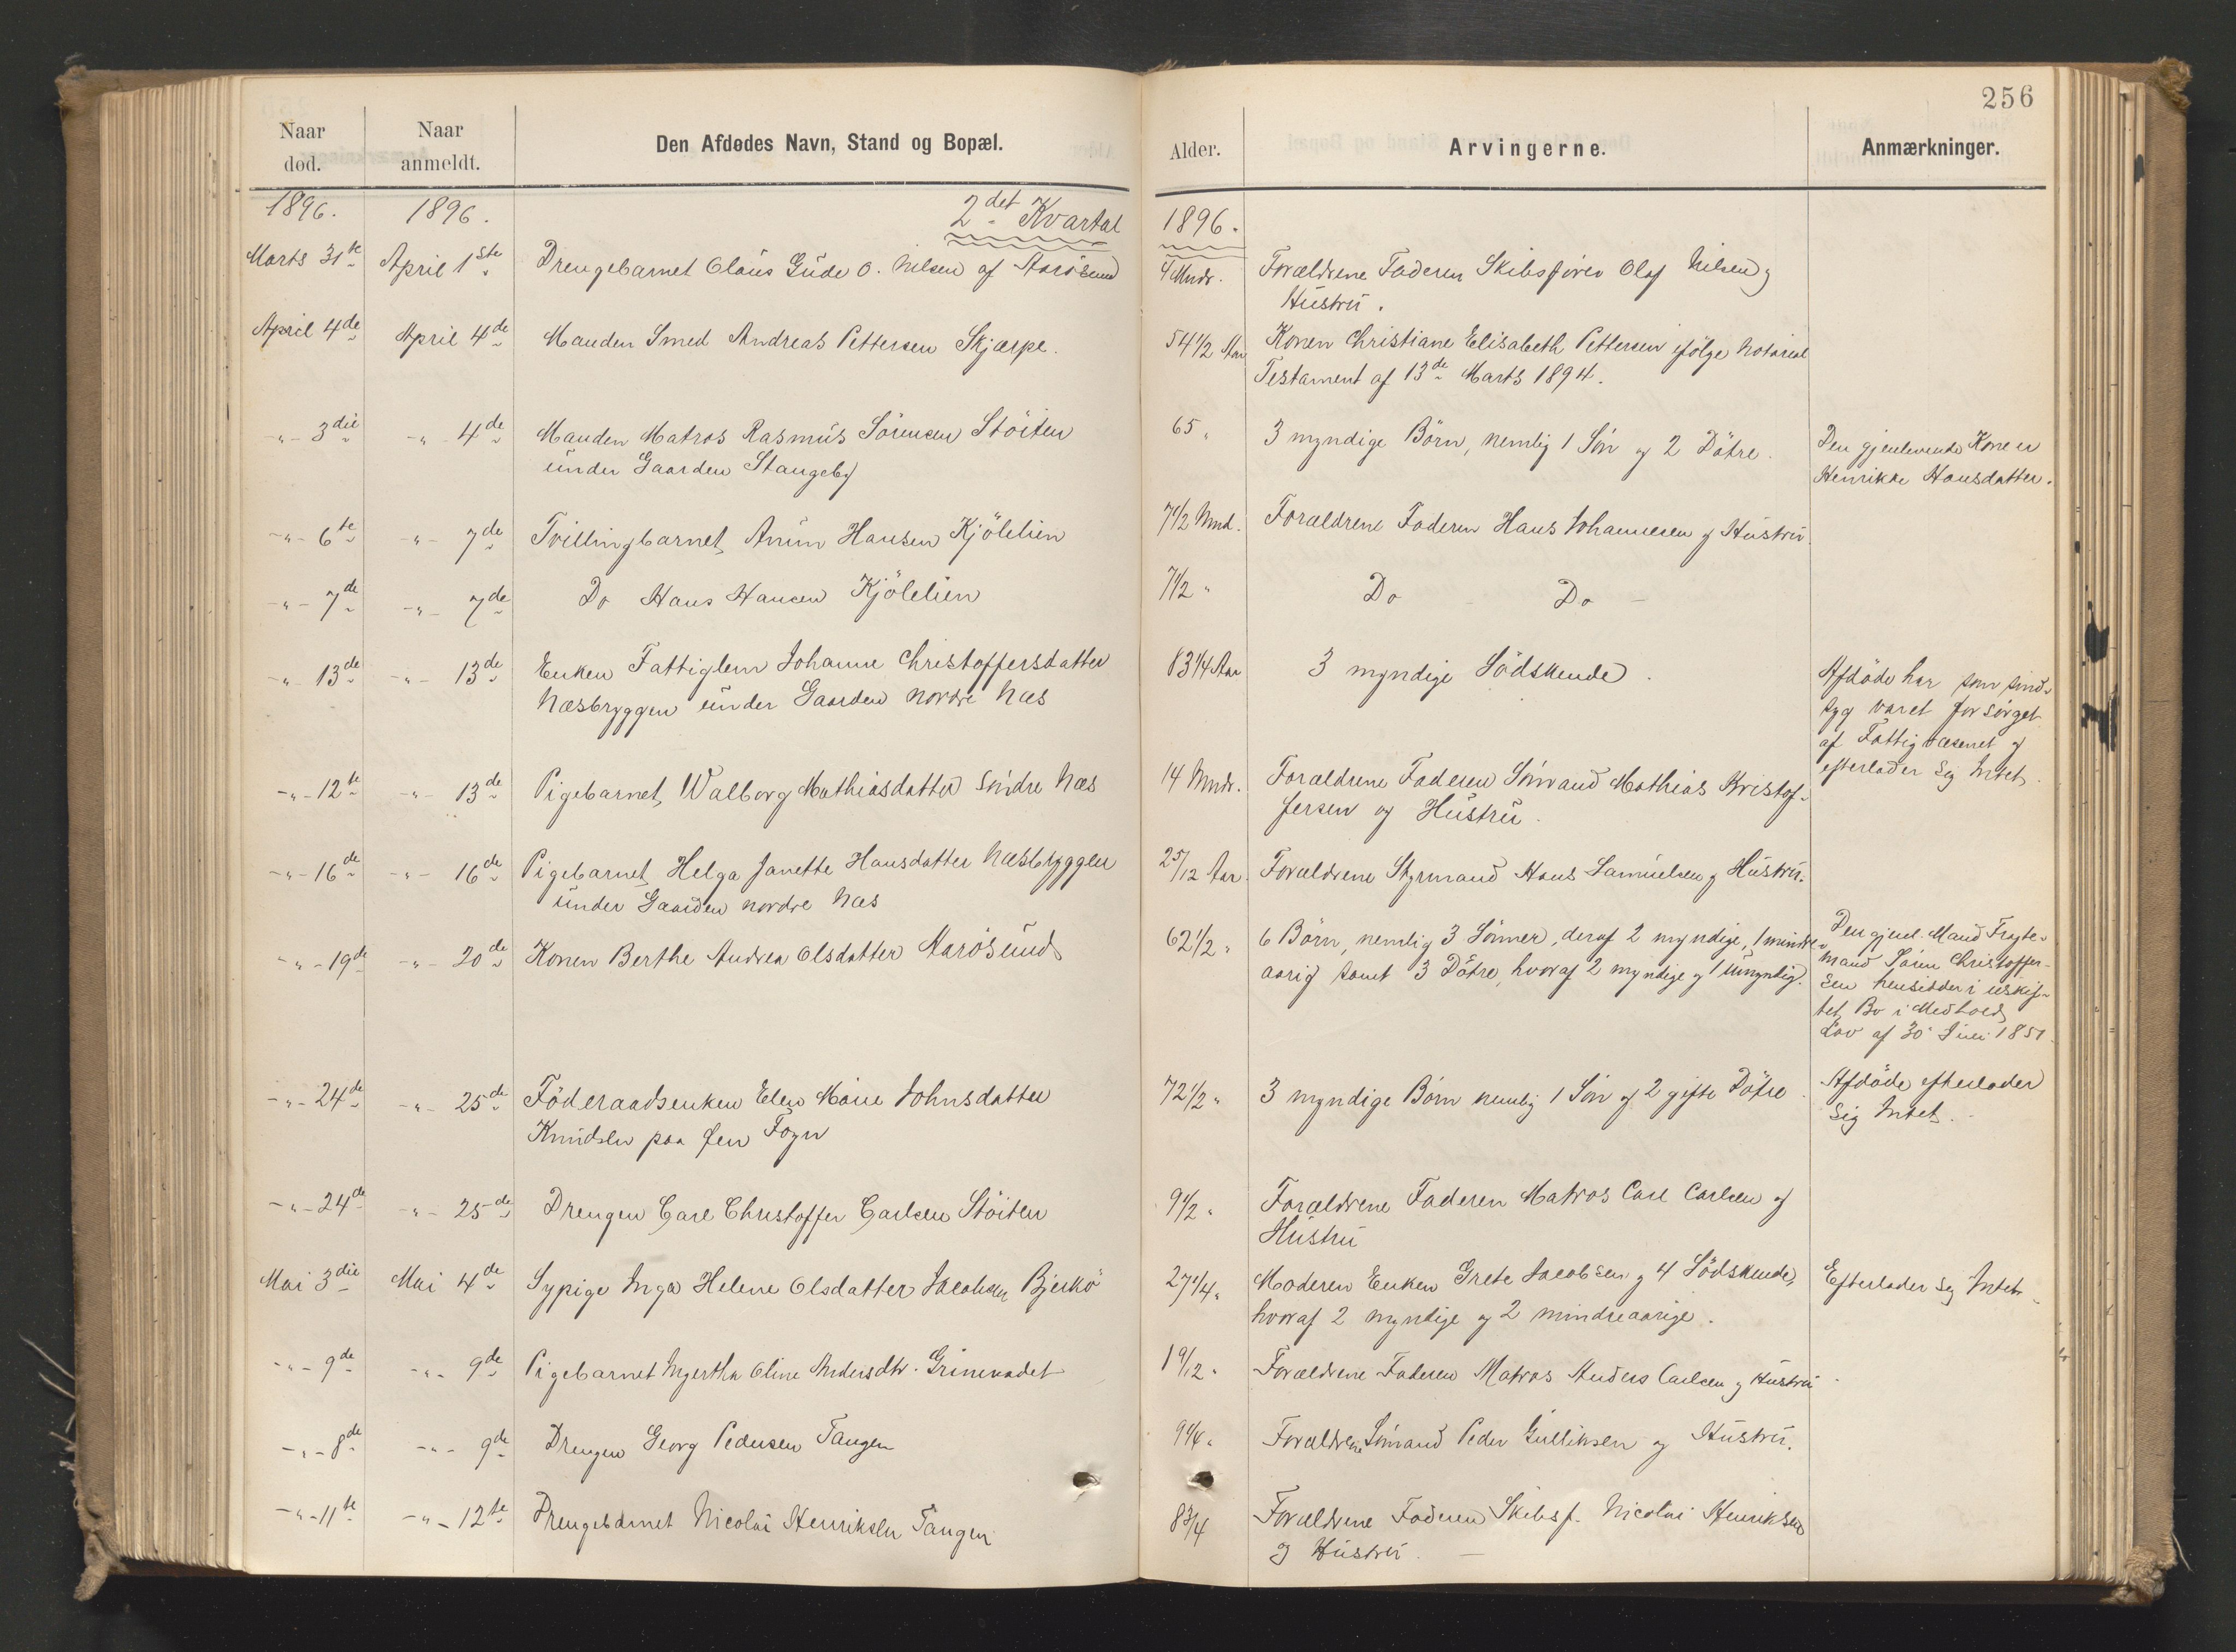 256
Naar død. Naar anmeldt. Den Afdødes Navn, Stand og Bopæl. Alder. Arvingerne. Anmærkninger.
1896. 1896. 2det Kvartal 1896.
Marts 31te April 1ste Drengebarnet Claus Gude O. Nilsen af Aarösund 4 Mndr. Forældrene Faderen Skibsfører Olaf Nilsen og
Hustru.
April 4de April 4de Manden Smed Andreas Pettersen Skjærpe. 54 1/2 Aar Konen Christiane Elisabeth Pettersen ifölge Notarial
Testament af 13de Marts 1894.
-"- 3die -"- 4de Manden Matros Rasmus Sörensen Stöiten 65 " 3 myndige Börn, nemlig 1 Sön og 2 Dötre. Den gjenlevende Kone er
under Gaarden Stangeby Henrikke Hansdatter.
-"- 6te -"- 7de Tvillingbarnet Anun Hansen Kjölelien 7 1/2 Mnd. Forældrene Faderen Hans Johannesen og Hustru.
-"- 7de -"- 7de Do Hans Hansen Kjölelien 7 1/2 " Do - Do -
-"- 13de -"- 13de Enken Fattiglem Johanne Christoffersdatter 83 1/4 Aar 3 myndige Södskende. Afdöde har som sind-
Næsbryggen under Gaarden nordre Næs syg varet forsörget
af Fattigvæsenet og
efterlader sig Intet.
-"- 12te -"- 13de Pigebarnet Walborg Mathiasdatter Söndre Næs 14 Mndr. Forældrene Faderen Sömand Mathias Kristof-
fersen og Hustru.
-"- 16de -"- 16de Pigebarnet Helga Janette Hansdatter Næsbryggen 2 5/12 Aar Forældrene Styrmand Hans Samuelsen og Hustru.
under Gaarden nordre Næs
-"- 19de -"- 20de Konen Berthe Andrea Olsdatter Aarösund 62 1/2 " 6 Börn, nemlig 3 Sönner, deraf 2 myndige, 1 mindre- Den gjenl. Mand Fragte-
aarig samt 3 Dötre, hvoraf 2 myndige og 1 Umyndig. mand Sören Christoffer-
sen hensidder i uskif-
tet Bo i Medhold
Lov af 30 Juli 1851.
-"- 24de -"- 25de Föderaadsenken Elen Marie Johnsdatter 72 1/2 " 3 myndige Börn nemlig 1 Sön og 2 gifte Dötre. Afdöde efterlader
Knudsen paa Öen Föyn Sig Intet.
-"- 24de -"- 25de Drengen Carl Christoffer Carlsen Stöiten 9 1/2 " Forældrene Faderen Matros Carl Carlsen og
Hustru
Mai 3die Mai 4de Sypige Inga Helene Olsdatter Jacobsen Bjerkö 27 1/4 " Moderen Enken Grete Jacobsen og 4 Södskende, Efterlader sig Intet.
hvoraf 2 myndige og 2 mindreaarige.
-"- 9de -"- 9de Pigebarnet Ingertha Oline Andersdtr. Grimevadet 1 9/12 " Forældrene Faderen Matros Anders Carlsen og Hustru.
-"- 8de -"- 9de Drengen Georg Pedersen Tangen Forældrene Sömand Peder Gulliksen og Hustru.
-"- 11te -"- 12te Drengebarnet Nicolai Henriksen Tangen 8 3/4 Forældrene Faderen Skibsf. Nicolai Henriksen
og Hustru. -